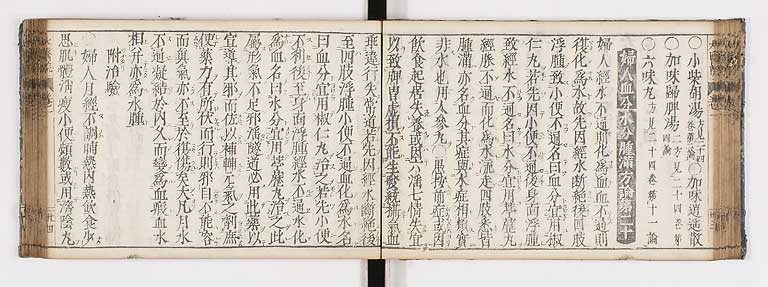 〇小柴胡湯方見二十四卷第
〇加味逍遥散
〇加味歸脾湯二方見二十四卷第四論
〇六味丸方見二十四卷第十一論
婦人血分水分腫滿方論第二十
婦人經水不通則化爲血血不通則
復化爲水故先因經水斷絶後四肢
浮腫致小便不通名曰血分宜用椒
仁丸若先因小便不通後身面浮腫
致經水不通名曰水分宜用葶藶丸
經脉不通而化爲水流走四肢悉皆
腫滿亦名血分其症與水症相類實
非水也用人參丸
飲食起居失養或因六淫七情失宜
以致脾胃虛損不能生發統攝氣血
乖違行失常道若先因經水斷絶後
至四肢浮腫小便不通血化爲水名
曰血分宜用椒仁丸治之若先小便
不利後至身面浮腫經水不通水化
爲血名曰水分宜用葶藶丸治之此
屬形氣不足邪淫隧道必用此藥以
宣導其邪而佐以補輔元氣之劑庶
使藥力有所伏而行則邪自不能容
而眞氣亦不至於復傷矣大凡月水
不通凝結於内久而變爲血瘕血水
相升亦爲水腫
附治驗
〇一婦人月經不調晡熱内熱飲食少
思肌體消瘦小便頻數或用濟陰丸